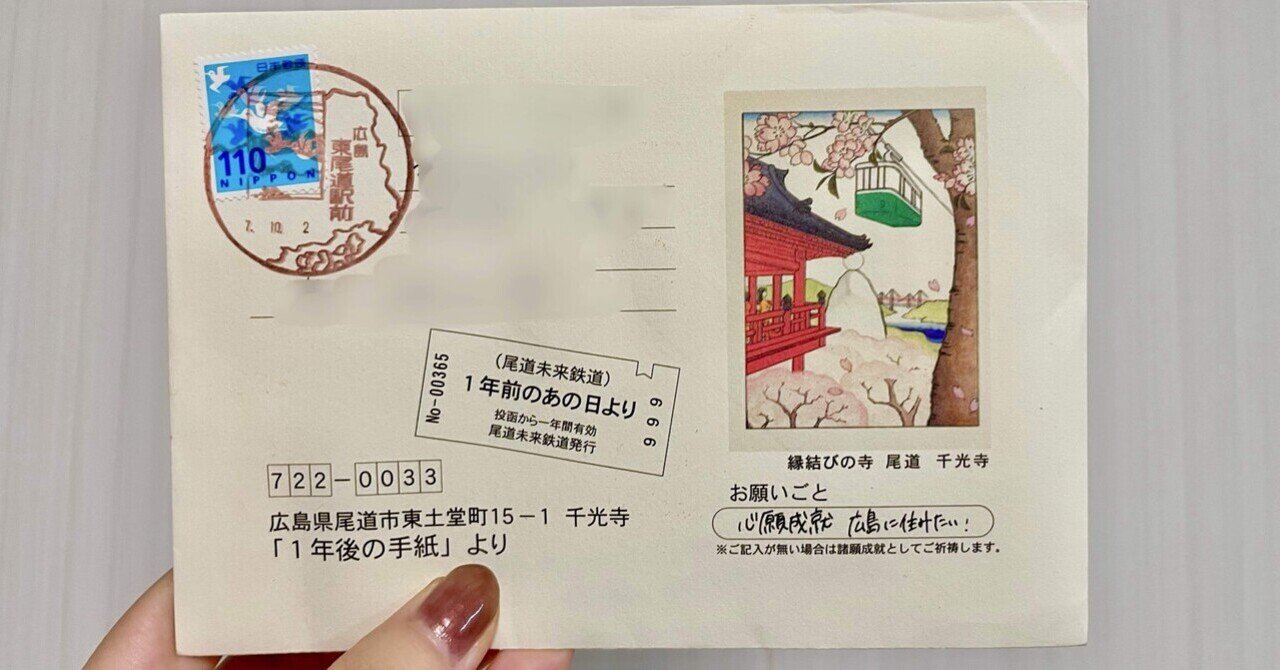 日本郵便
110
NIPPON
広島
東尾道駅前
7. 10. 2
No-00365
(尾道未来鉄道)
1年前のあの日より
投函から一年間有効
尾道未来鉄道発行
999
722-0033
広島県尾道市東土堂町15-1 千光寺
「1年後の手紙」より
縁結びの寺 尾道 千光寺
お願いごと
心願成就 広島に住みたい!
※ご記入が無い場合は諸願成就としてご祈祷します。